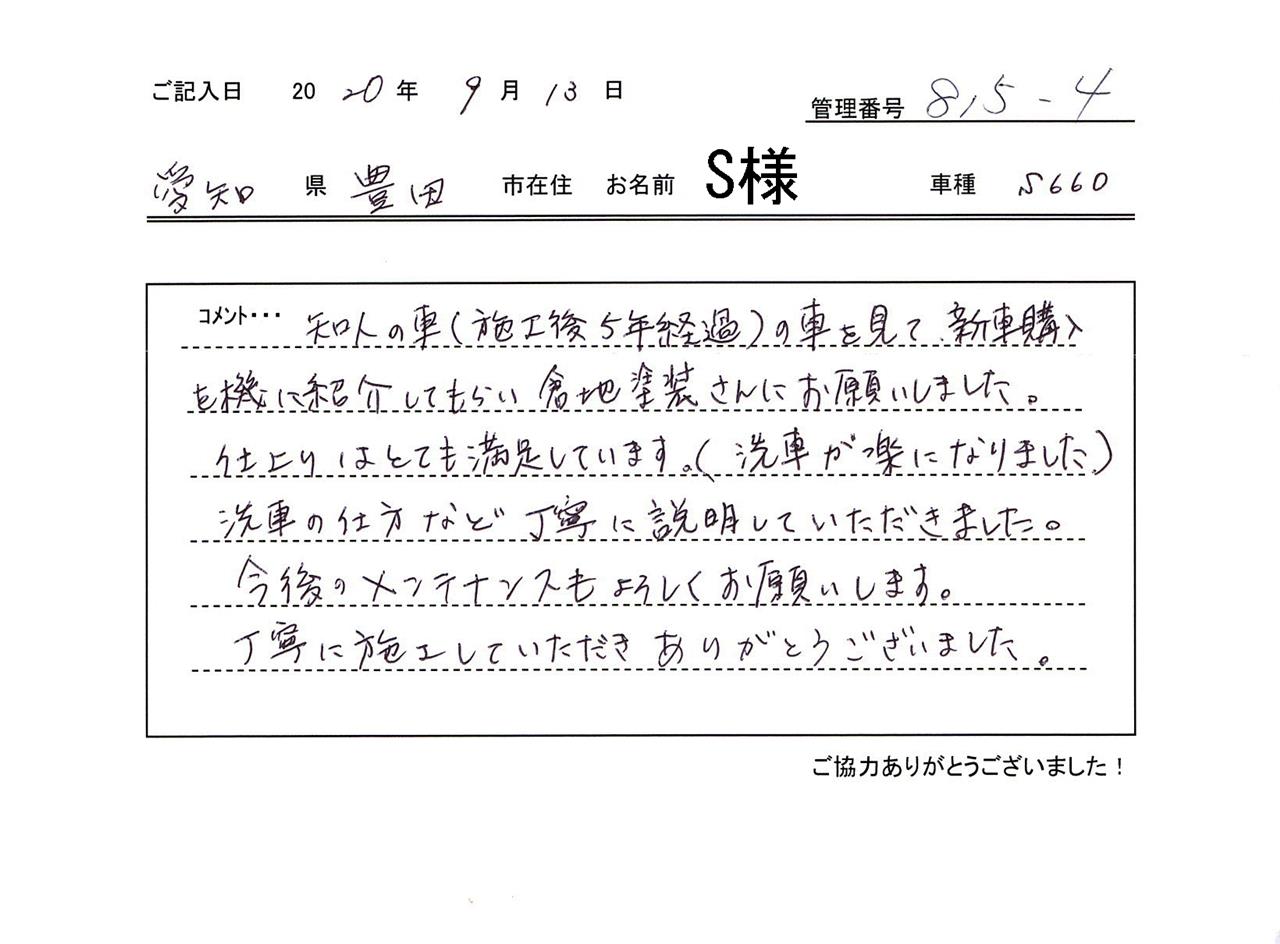 ご記入日 2020年 9月 13日
管理番号 815-4
愛知 県 豊田 市在住 お名前 S様 車種 S660
コメント・・・ 知人の車(施工後5年経過)の車を見て、新車購入
を機に紹介してもらい倉地塗装さんにお願いしました。
仕上りはとても満足しています。(洗車が楽になりました。)
洗車の仕方など丁寧に説明していただきました。
今後のメンテナンスもよろしくお願いします。
丁寧に施工していただきありがとうございました。
ご協力ありがとうございました!